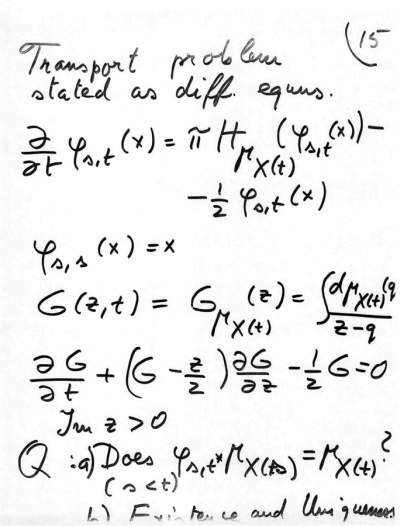 (15
Transport problem
stated as diff. equns.
∂/∂t φ_{s,t}(x) = π H_{μ_{X(t)}} (φ_{s,t}(x)) −
− 1/2 φ_{s,t}(x)
φ_{s,s}(x) = x
G(z,t) = G_{μ_{X(t)}}(z) = ∫ dμ_{X(t)}(q / z−q
∂G/∂t + (G − z/2) ∂G/∂z − 1/2 G = 0
Im z > 0
Q : a) Does φ_{s,t *} μ_{X(s)} = μ_{X(t)} ?
(s < t)
b) Existence and Uniqueness